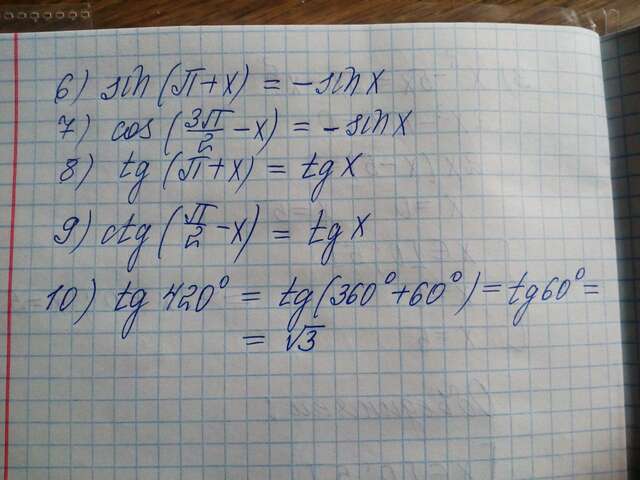 6) sin(π+x) = -sinx
7) cos(3π/2-x) = -sinx
8) tg(π+x) = tgx
9) ctg(π/2-x) = tgx
10) tg 420° = tg(360°+60°) = tg60° =
= √3